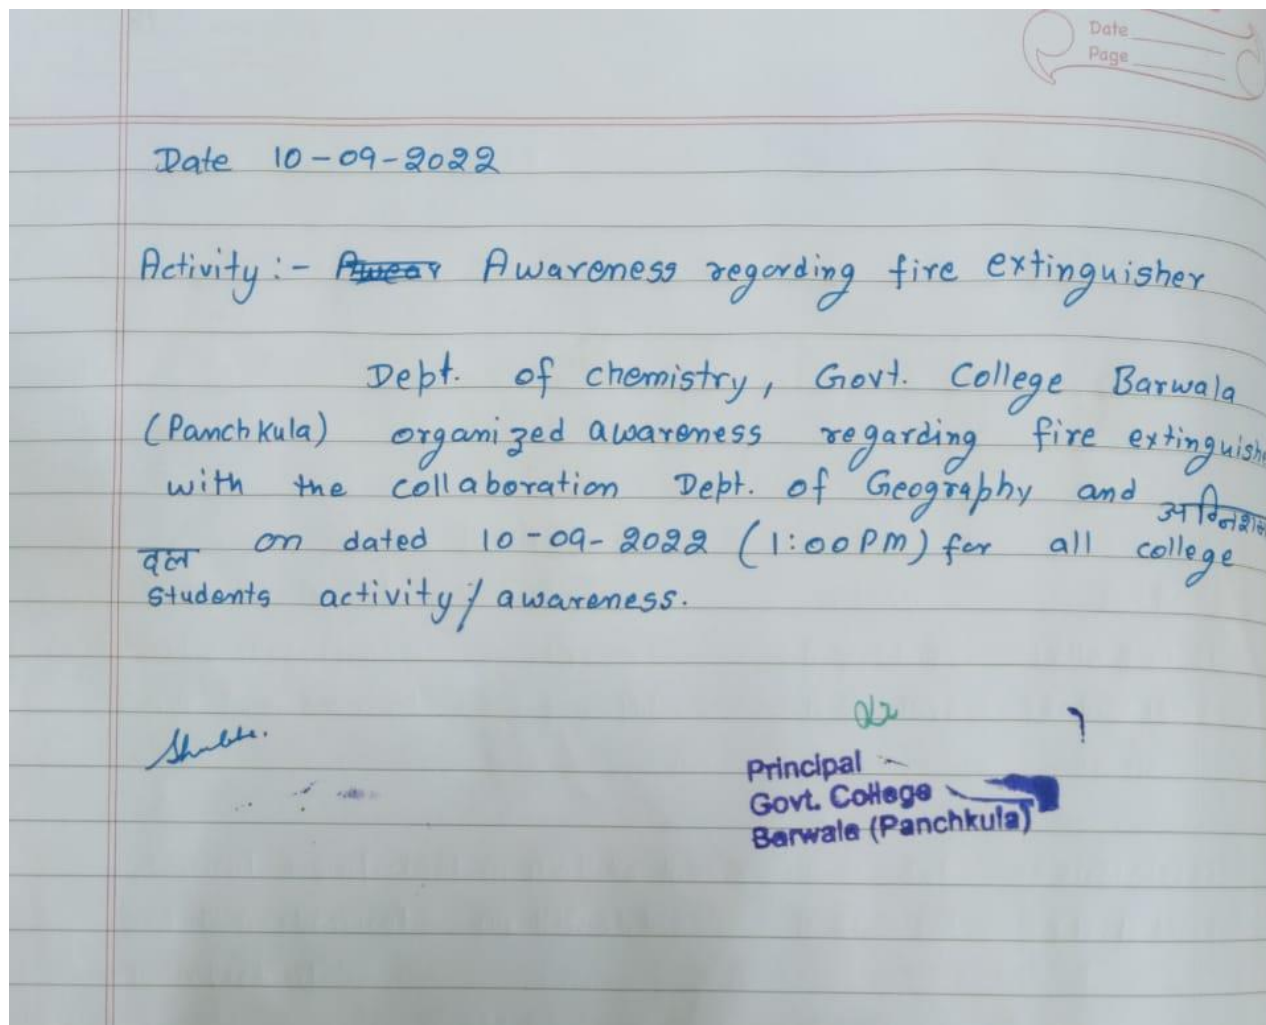 Date
Page
Date 10-09-2022
Activity :- Awareness regarding fire extinguisher
Dept. of chemistry, Govt. College Barwala
(Panchkula) organized awareness regarding fire extinguishe
with the collaboration Dept. of Geography and
दल on dated 10-09-2022 (1:00PM) for all college
students activity/ awareness.
Principal
Govt. College
Barwala (Panchkula)